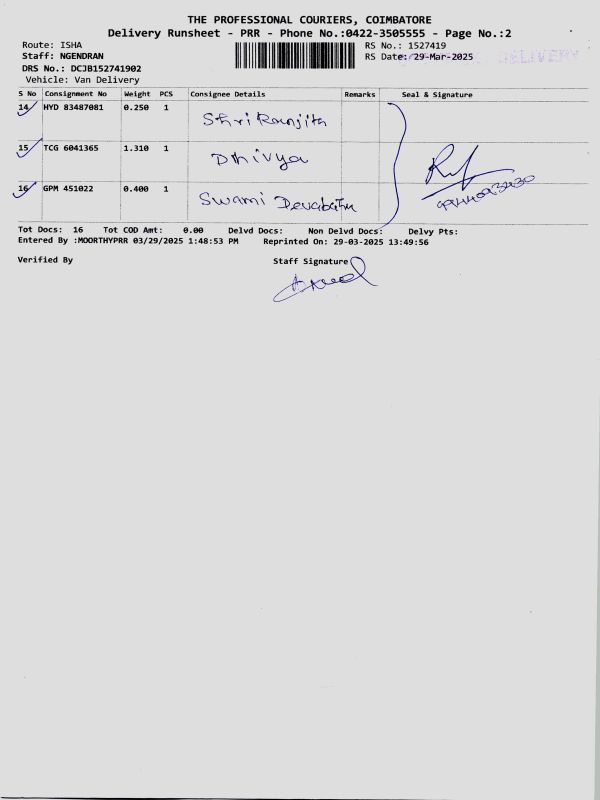 THE PROFESSIONAL COURIERS, COIMBATORE
Delivery Runsheet - PRR - Phone No.:0422-3505555 - Page No.:2
Route: ISHA RS No.: 1527419
Staff: NGENDRAN RS Date: 29-Mar-2025 DELIVERY
DRS No.: DCJB152741902
Vehicle: Van Delivery
S No Consignment No Weight PCS Consignee Details Remarks Seal & Signature
14 HYD 83487081 0.250 1 Shri Ranjith
15 TCG 6041365 1.310 1 Dhivya
16 GPM 451022 0.400 1 Swami
Tot Docs: 16 Tot COD Amt: 0.00 Delvd Docs: Non Delvd Docs: Delvy Pts:
Entered By :MOORTHYPRR 03/29/2025 1:48:53 PM Reprinted On: 29-03-2025 13:49:56
Verified By Staff Signature